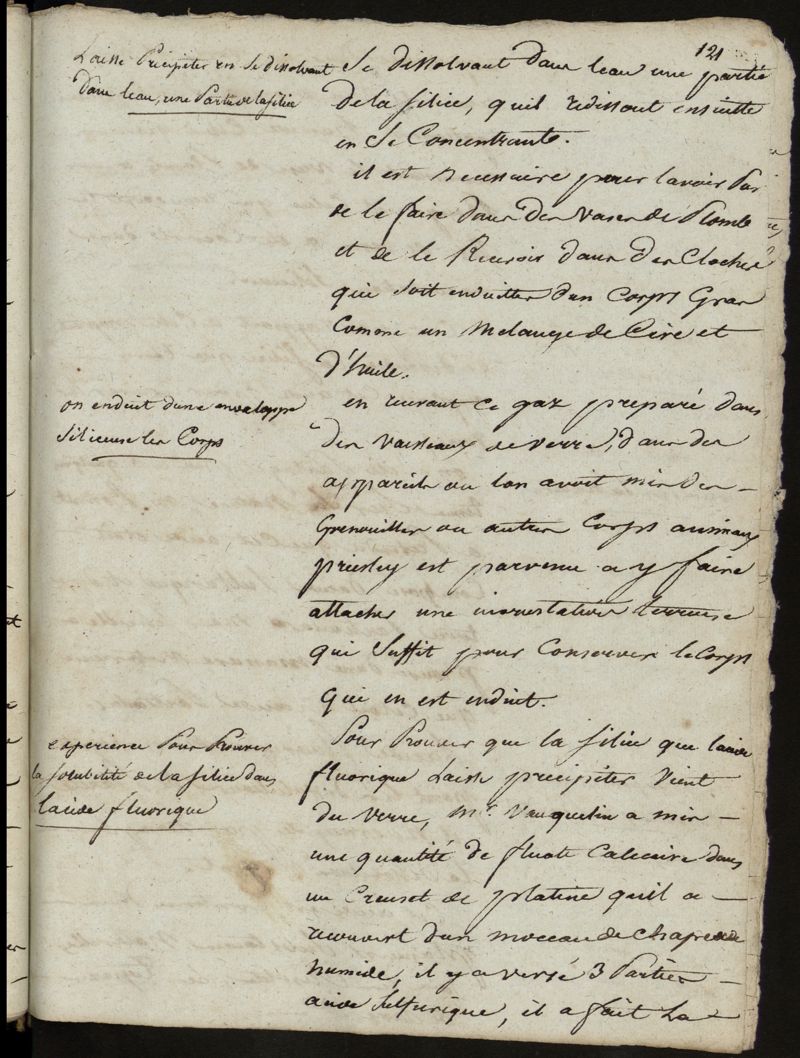 121
Laisse Précipiter en se dissolvant
dans leau, une Partie de la silice
se dissolvant dans leau une partie
de la silice, quil redissout ensuitte
en se Concentrante.
il est necessaire pour lavoir Pur
de le faire dans des vases de Plomb
et de le Recevoir dans des Cloches
qui soit enduittes d'un Corps Gras
Comme un melange de Cire et
d'huile.
on enduit dune enveloppe
siliceuse les Corps
en recevant ce gaz preparé dans
des vaisseaux de verre, dans des
appareils ou lon avoit mis des -
Grenouilles ou autres Corps animaux
priesley est parvenu a y faire
attacher une incrustation terreuse
qui suffit pour Conserver le Corps
qui en est enduit.
experience Pour Prouver
la solubilité de la silice dans
lacide fluorique
Pour Prouver que la silice que lacide
fluorique Laisse precipiter vient
du verre, mr. Vauquelin a mis -
une quantité de fluate Calcaire dans
un Creuset de platine quil a -
recouvert d'un morceau de chapeau
humide, il y a versé 3 Parties -
acide sulfurique, il a fait La -